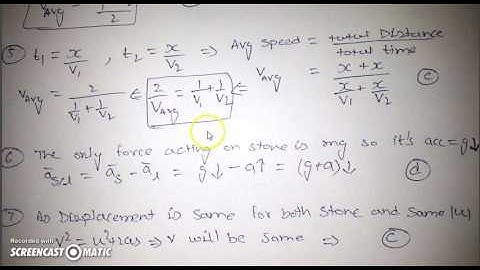 V_Avg = 1/V1 + 1/V2 / 2
⑤ t₁ = x/V₁ , t₂ = x/V₂ ⇒ Avg speed = total Distance / total time
V_Avg = 2 / (1/V₁ + 1/V₂) ⇐ 2/V_Avg = 1/V₁ + 1/V₂ ⇐ V_Avg = (x + x) / (x/V₁ + x/V₂) (c)
⑥ The only force acting on stone is mg so it's acc = g↓
ā = ā_s - ā_l = g↓ - a↑ = (g+a)↓ (d)
⑦ As Displacement is Same for both Stone and Same |u|
V² = u²+2as ⇒ v will be same ⇒ (c)
Recorded with
SCREENCAST MATIC